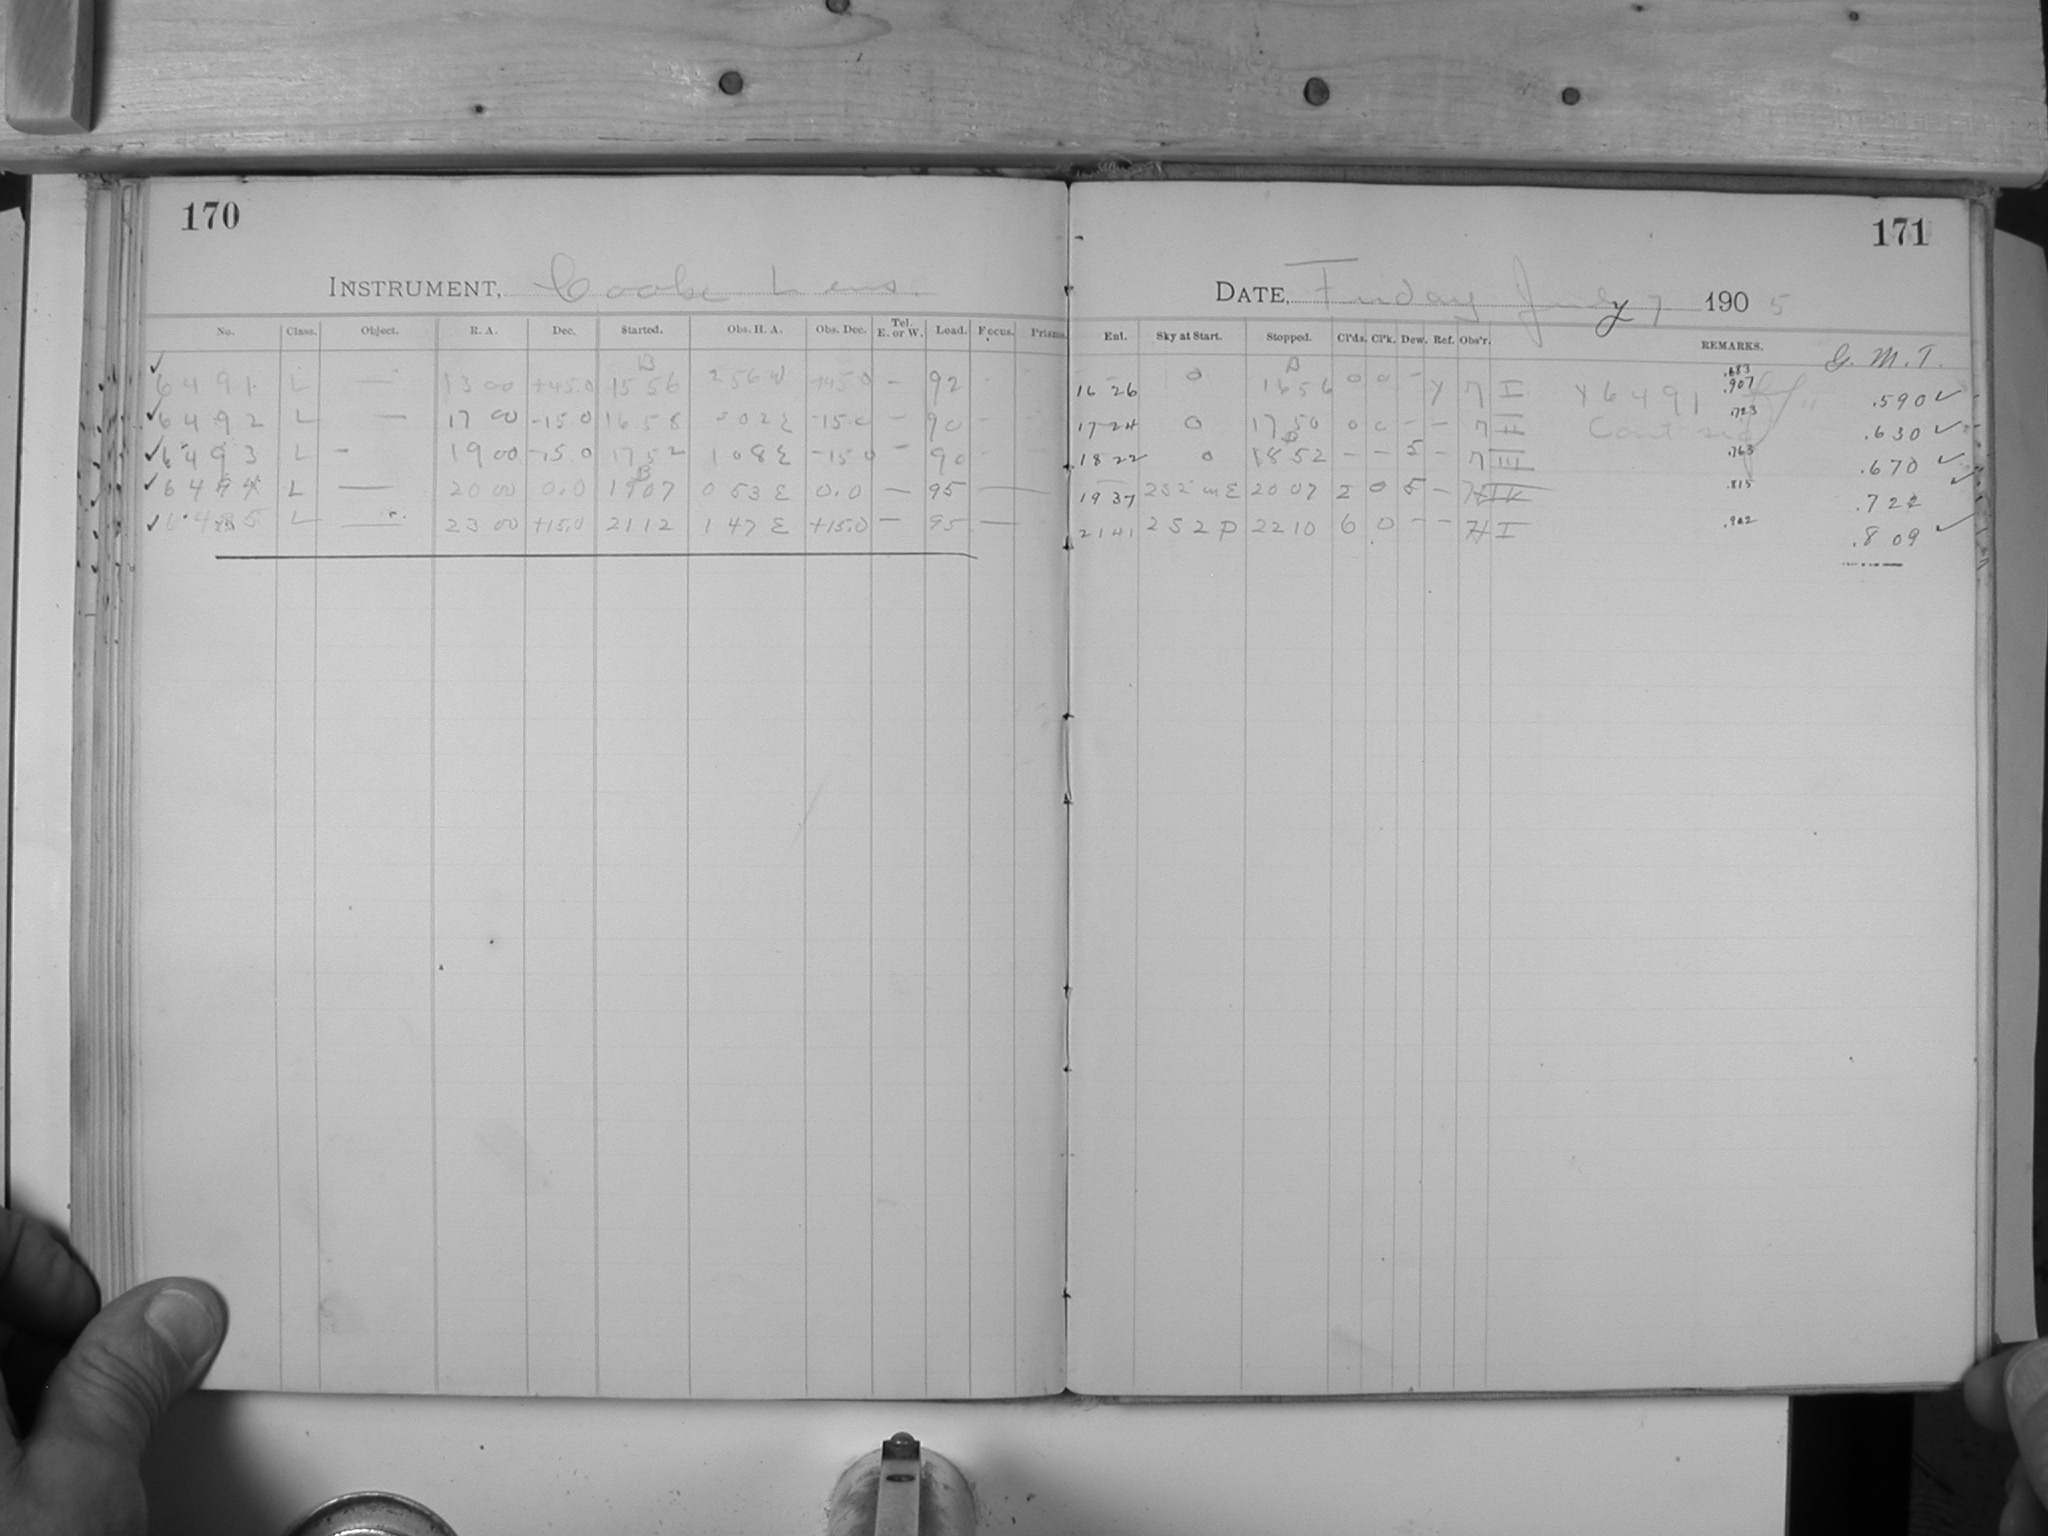 170
INSTRUMENT, Cooke Lens.
No. Class. Object. R. A. Dec. Started. Obs. H. A. Obs. Dec. Tel. E. or W. Load. Focus. Prisms.
✓ 6491 L — 13 00 +45.0 B 15 56 2 56 W +45.0 — 92 -
✓ 6492 L — 17 00 -15.0 16 58 0 02 E -15.0 — 90 -
✓ 6493 L - 19 00 -15.0 17 52 1 08 E -15.0 - 90 -
✓ 6494 L — 20 00 0.0 B 19 07 0 53 E 0.0 — 95 —
✓ L — 23 00 +15.0 21 12 1 47 E +15.0 — 95 —
171
DATE, Friday July 7 1905
Ent. Sky at Start. Stopped. Cl'ds. Cl'k. Dew. Ref. Obs'r. REMARKS. G. M. T.
16 26 0 16 56 0 0 - Y 7 I Y 6491 .683 .907 .590 ✓
17 24 0 17 50 0 0 - - 7 II .723 .630 ✓
18 22 0 18 52 - - 5 - 7 III .763 .670 ✓
19 37 2 S 2 m E 20 07 2 0 5 - .815 .722 ✓
21 41 2 S 2 P 22 10 6 0 - - I .902 .809 ✓